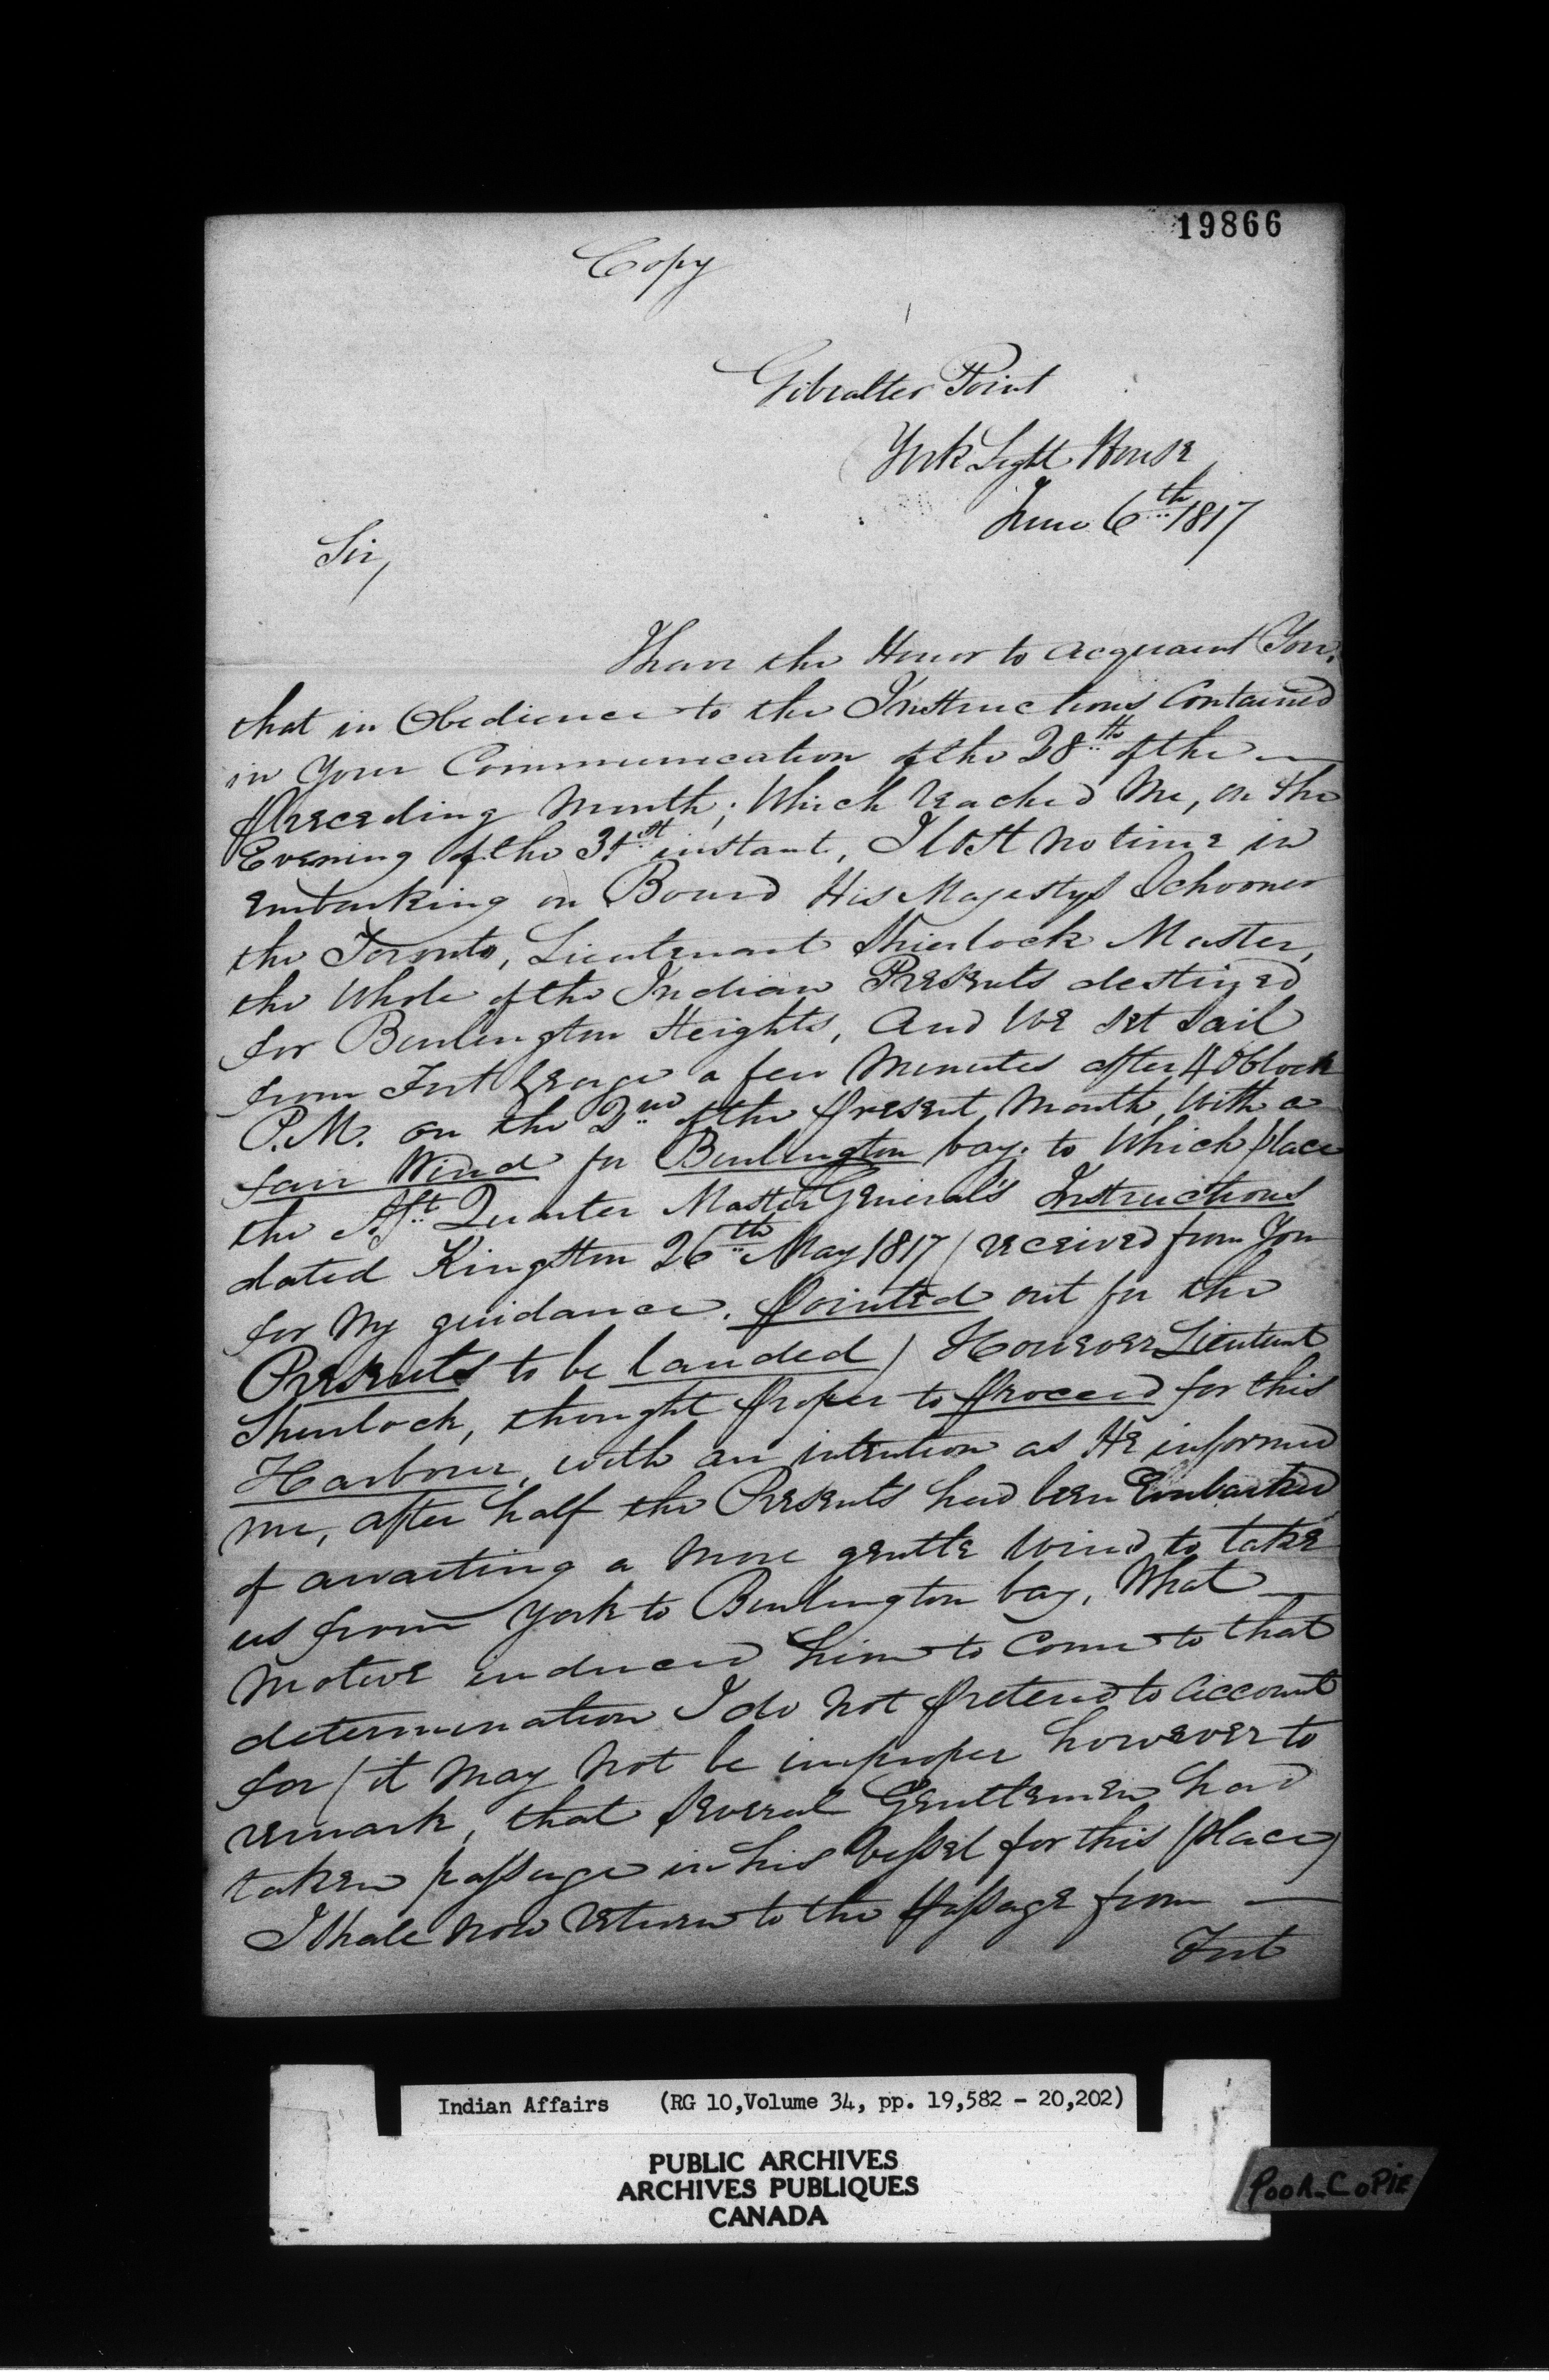 19866
Copy
Gibralter Point
York Light House
June 6th 1817
Sir,
I have the Honor to acquaint You,
that in Obedience to the Instructions Contained
in Your Communication of the 28th of the —
Preceding Month; Which reached Me, on the
Evening of the 31st instant, I lost no time in
embarking on Board His Majestys Schooner
the Toronto, Lieutenant Shierlock Master,
the Whole of the Indian Presents destined
for Burlington Heights, and We set sail
from Fort George a few Minutes after 4 OClock
P.M. on the 2nd of the present Month, With a
fair Wind for Burlington bay. to Which place
the Asst Quarter Master General's Instructions
dated Kingston 26th May 1817 (received from You
for My guidance, pointed out for the
Presents to be landed) However Lieutent
Sherlock, thought proper to proceed for this
Harbour, with an intention as He informed
me, after half the Presents had been Embarked
of awaiting a more gentle Wind to take
us from York to Burlington bay, What —
Motive induced him to Come to that
determination I do Not pretend to account
for (it May Not be improper however to
remark, that several Gentlemen had
taken passage in his Vessel for this place)
I Shall Now return to the passage from —
Fort
Indian Affairs (RG 10,Volume 34, pp. 19,582 - 20,202)
PUBLIC ARCHIVES
ARCHIVES PUBLIQUES
CANADA
POOR-COPIE